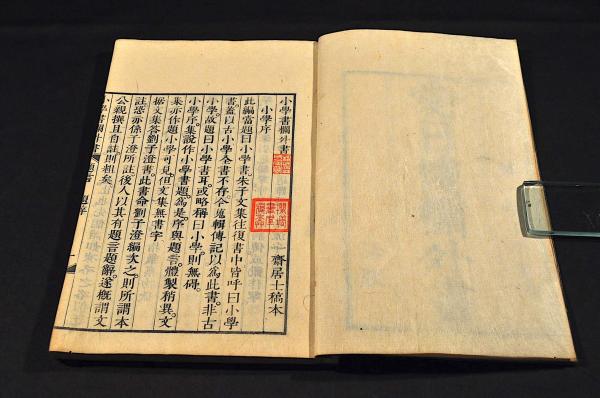 小學書欄外書
一齋居士稿本
小學序
此編當題曰小學書朱子文集往復書中皆呼曰小學
書蓋以古小學全書不存今蒐輯傳記以為此書非古
小學故題曰小學書耳或略稱曰小學則無礙
小學序集說作小學書題為是序與題言體製稍異文
集亦作題小學可見但文集無書字
據文集答劉子澄書此書命劉子澄編次之則所謂本
註恐亦係子澄所註後人以其有題言題辭遂概謂文
公親撰且自註則粗矣
小學書欄外書